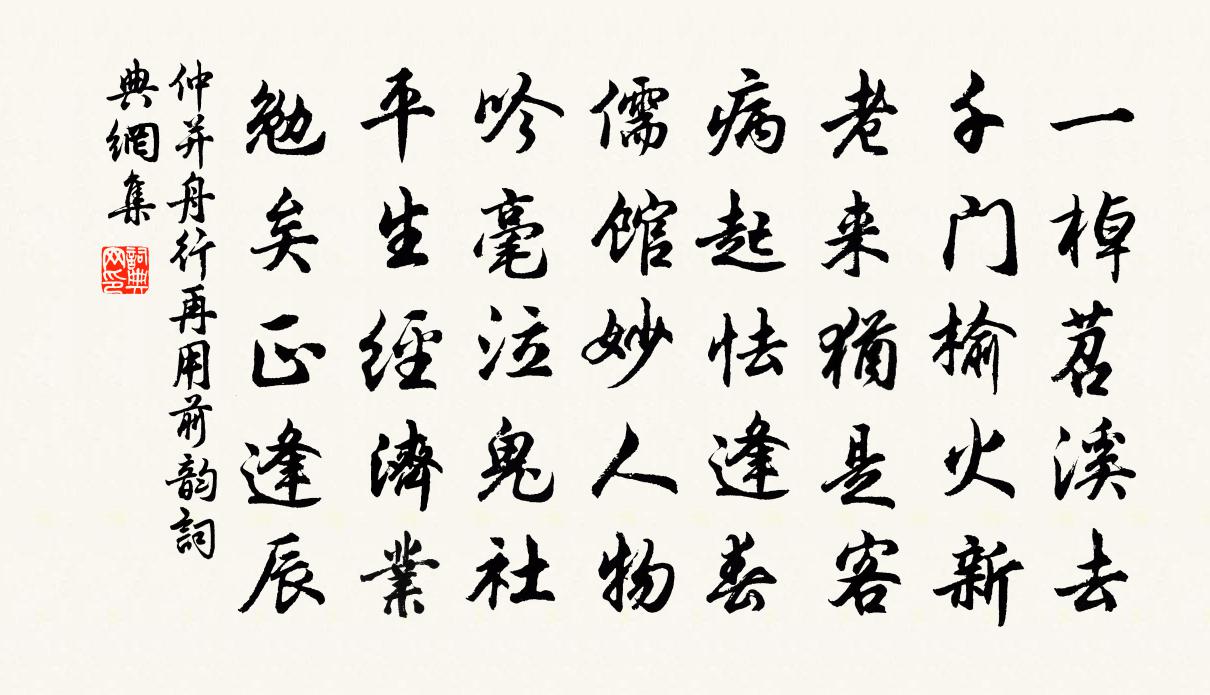 一棹苕溪去
千门榆火新
老来犹是客
病起怯逢春
儒馆妙人物
吟毫泣鬼社
平生經濟業
勉矣正逢辰
仲并舟行再用前韵詞
典網集
詞典網印